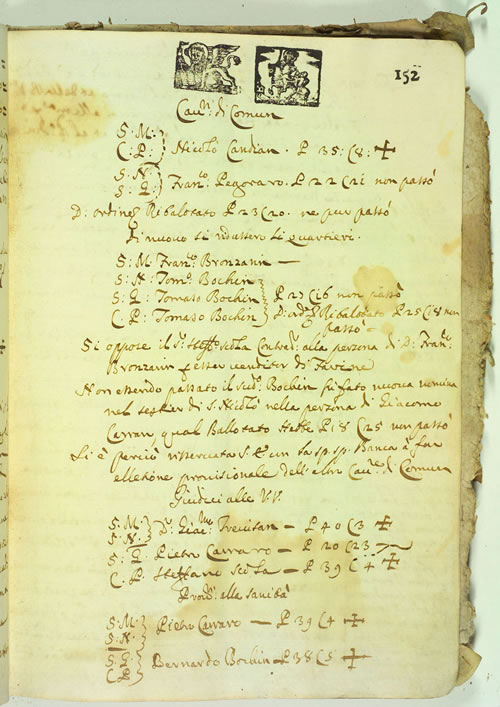 152
Cau.ri di Comun
S: M:
C: P: Nicolò Candian. P 35: C 8: ✠
S: N:
S: G: Fran.co Pegoraro. P 22 C 21 non passò
D: ordine Ribalotato P 23 C 20. ne pur passò
Di nuovo si ridussero li quartieri.
S: M: Fran.co Bronzann —
S: N: Tom.o Bochin
S: G: Tomaso Bochin P 27 C 16 non passò
C: P: Tomaso Bochin D: Ribalotato P 25 C 18 non
passò
Si oppose il S.r Steff.o Scola Contrad.r alla persona di D: Fran.co
Bronzann esser venditor di Farine
Non essendo passato il sud.o Bochin fu fatto nuova nomina
nel sestier di S. Nicolò nella persona di Giacomo
Carran qual Ballotato stette P 18 C 25 non passò
Si è perciò la sp. sp. Banca à far
ellezione provisionale dell'altro Cau.r di Comun
Giudici alle V.V.
S: M:
S: N: D.r Giac.mo Trevisan — P 40 C 3 ✠
S: G: Pietro Carraro — P 20 C 23
C: P: Steffano Scola — P 39 C 4 ✠
Prov.ri alla sanità
S: M:
S: N: Pietro Carraro — P 39 C 4 ✠
S: G:
C: P: Bernardo Bochin — P 38 C 5 ✠